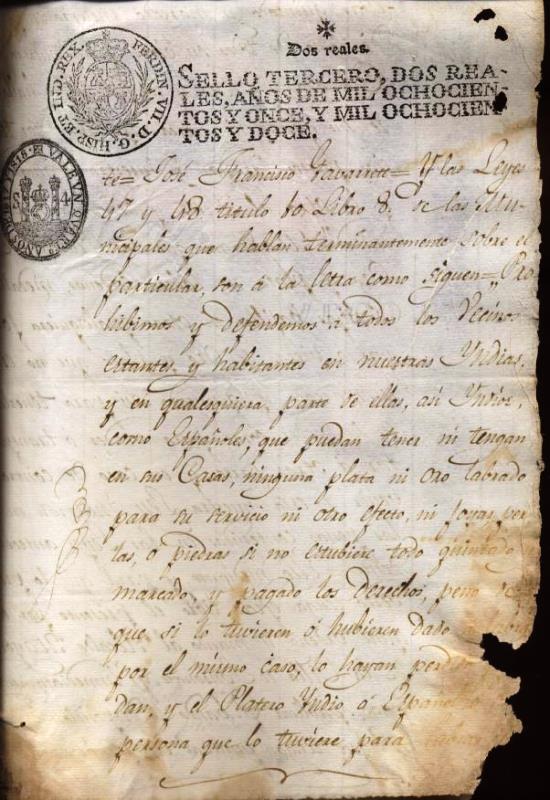 Dos reales.
SELLO TERCERO, DOS REA-
LES, AÑOS DE MIL OCHOCIEN-
TOS Y ONCE, Y MIL OCHOCIEN-
TOS Y DOCE.
FERDIN. VII. D. G. HISP. ET IND. REX.
te= José Francisco Gavarrete= Y las Leyes
47 y 48 titulo 10. Libro 8.º de las Mu-
nicipales que hablan terminantemente sobre el
particular, son á la letra como siguen= Pro
hibimos y defendemos á todos los Vecinos
estantes y habitantes en nuestras Yndias,
y en qualesquiera parte de ellas, asi Yndios,
como Españoles, que puedan tener ni tengan
en sus Casas, ninguna plata ni oro labrado
para su servicio ni otro efecto, ni Joyas, per
las, ó piedras si no estubiere todo quintado
marcado, y pagado los derechos, pena
que si lo tuvieren ó hubieren dado
por el mismo caso, lo hayan perdido
dan, y el Platero Yndio ó Español
persona que lo tuviere para